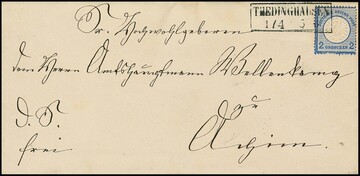 THEDINGHAUSEN
17 4
2 GROSCHEN 2
Sr. Hochwohlgeboren
dem Herrn Amtshauptmann Wellenkamp
zu
D. S.
Achim.
frei